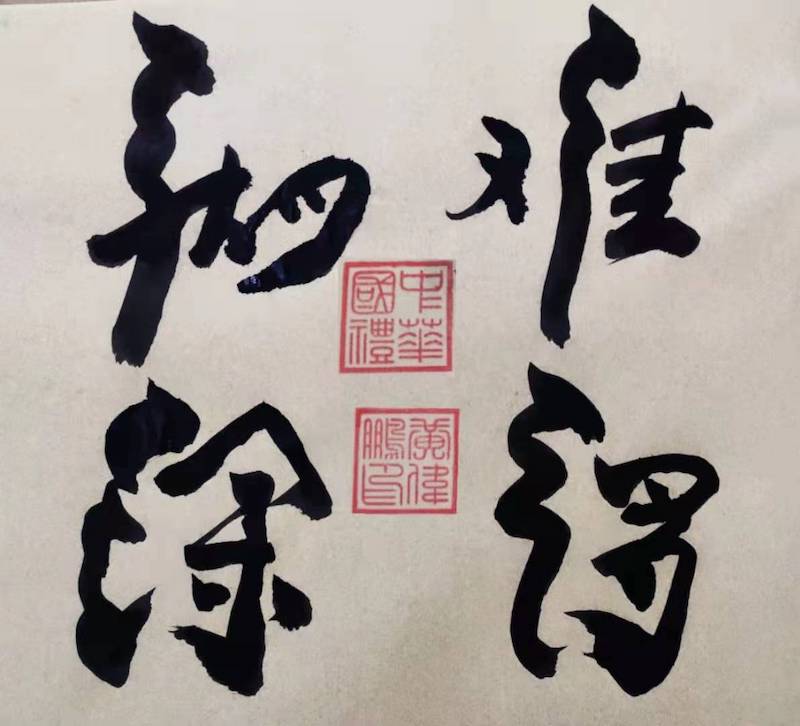 难得
糊涂
中華
國禮
黃偉
鵬印